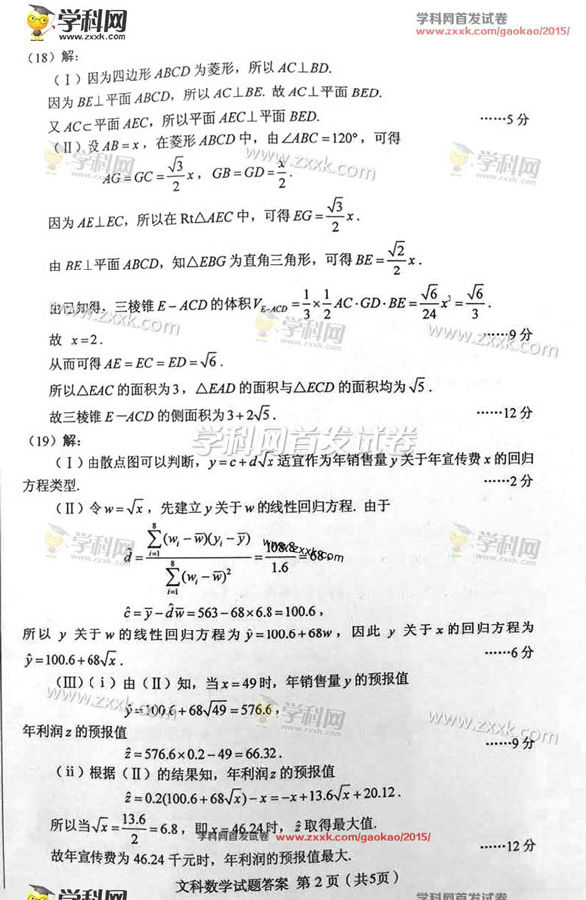 学科网
www.zxxk.com
学科网首发试卷
www.zxxk.com/gaokao/2015/
(18)解:
(Ⅰ)因为四边形 ABCD 为菱形,所以 AC⊥BD.
因为 BE⊥平面 ABCD,所以 AC⊥BE. 故 AC⊥平面 BED.
又 AC⊂平面 AEC,所以平面 AEC⊥平面 BED. ……5 分
(Ⅱ)设 AB = x,在菱形 ABCD 中,由 ∠ABC = 120°,可得
AG = GC = √3/2 x,GB = GD = x/2.
因为 AE⊥EC,所以在 Rt△AEC 中,可得 EG = √3/2 x.
由 BE⊥平面 ABCD,知△EBG 为直角三角形,可得 BE = √2/2 x.
由已知得,三棱锥 E-ACD 的体积 V_{E-ACD} = 1/3 × 1/2 AC·GD·BE = √6/24 x³ = √6/3.
故 x = 2. ……9 分
从而可得 AE = EC = ED = √6.
所以△EAC 的面积为 3,△EAD 的面积与△ECD 的面积均为 √5.
故三棱锥 E-ACD 的侧面积为 3 + 2√5. ……12 分
(19)解:
学科网首发试卷
(Ⅰ)由散点图可以判断,y = c + d√x 适宜作为年销售量 y 关于年宣传费 x 的回归
方程类型. ……2 分
(Ⅱ)令 w = √x,先建立 y 关于 w 的线性回归方程. 由于
d̂ = ∑_{i=1}^{8}(w_i - w̄)(y_i - ȳ) / ∑_{i=1}^{8}(w_i - w̄)² = 108.8/1.6 = 68,
ĉ = ȳ - d̂w̄ = 563 - 68×6.8 = 100.6,
所以 y 关于 w 的线性回归方程为 ŷ = 100.6 + 68w,因此 y 关于 x 的回归方程为
ŷ = 100.6 + 68√x. ……6 分
(Ⅲ)(ⅰ)由(Ⅱ)知,当 x = 49 时,年销售量 y 的预报值
ŷ = 100.6 + 68√49 = 576.6,
年利润 z 的预报值
ẑ = 576.6×0.2 - 49 = 66.32. ……9 分
(ⅱ)根据(Ⅱ)的结果知,年利润 z 的预报值
ẑ = 0.2(100.6 + 68√x) - x = -x + 13.6√x + 20.12.
所以当 √x = 13.6/2 = 6.8,即 x = 46.24 时,ẑ 取得最大值.
学科网首发试卷 www.zxxk.com/gaokao/2015/
故年宣传费为 46.24 千元时,年利润的预报值最大. ……12 分
文科数学试题答案 第 2 页(共5页)
学科网
学科网首发试卷